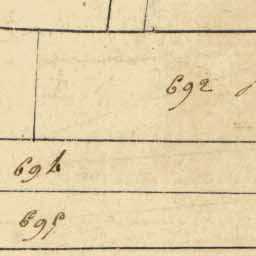 692
694
695